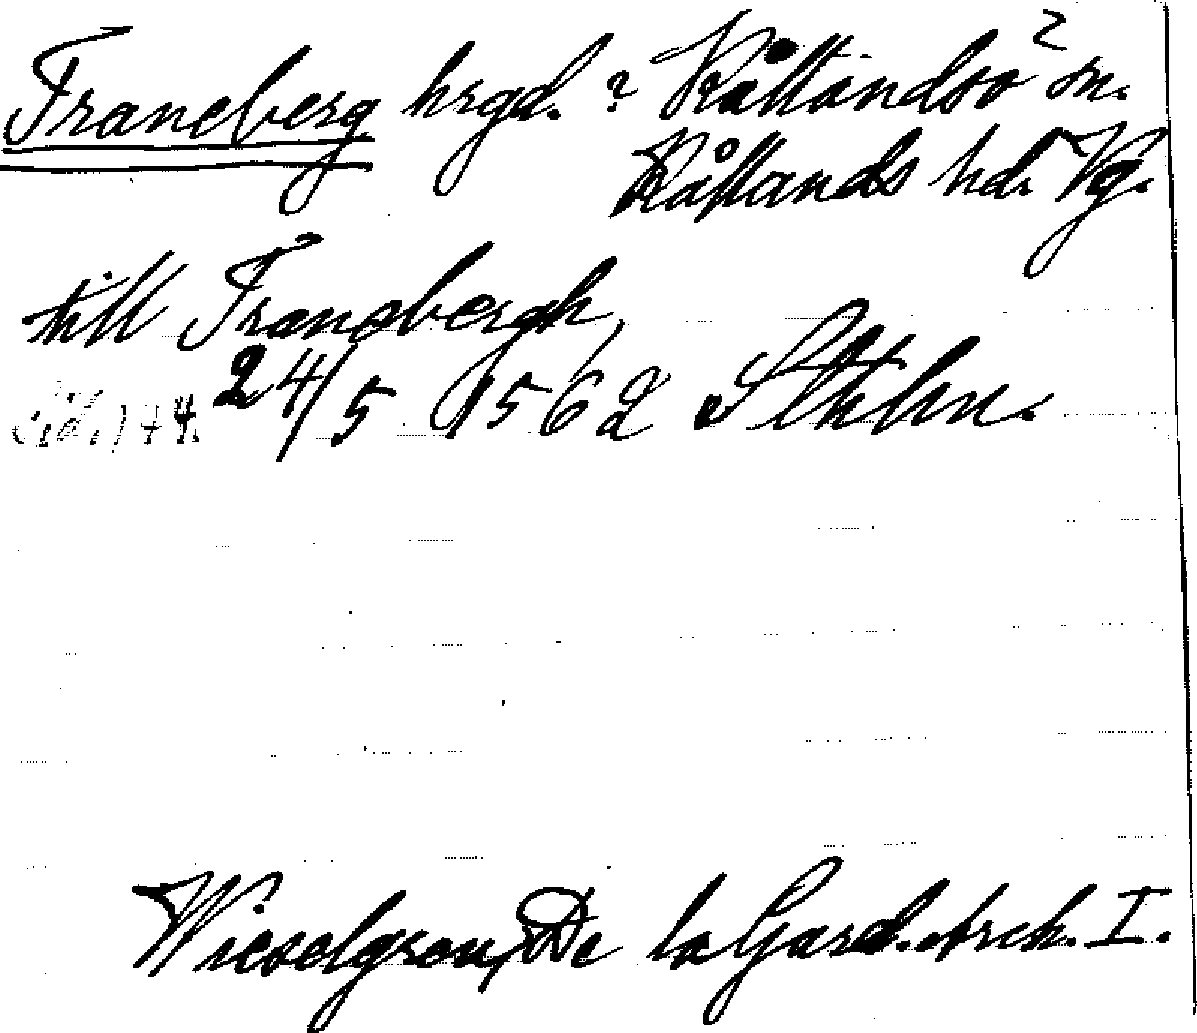 Traneberg hrgd. ? Kållandsö ? sn.
Kållands hd. Vg.
till Tranebergh,
24/5 1562 Sthlm.
Wieselgren, De la Gard. Arch. I.